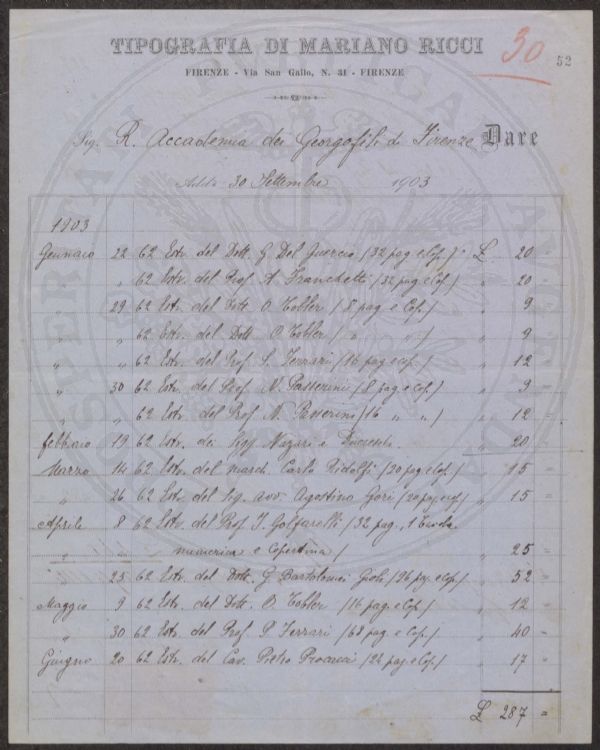 TIPOGRAFIA DI MARIANO RICCI
30
52
FIRENZE - Via San Gallo, N. 31 - FIRENZE
Sig. R. Accademia dei Georgofili di Firenze Dare
Addì 30 Settembre 1903
1903
Gennaio 22 62 Estr. del Dott. G. Del Guercio / 32 pag. e Cop. / £ 20 =
" " 62 Estr. del Prof. A. Franchetti / 32 pag. e Cop. / " 20 =
" 29 62 Estr. del Dott. O. Tobler / 8 pag. e Cop. / " 9 =
" " 62 Estr. del Dott. O. Tobler / " " / " 9 =
" " 62 Estr. del Prof. S. Ferrari / 16 pag. e cop. / " 12 =
" 30 62 Estr. del Prof. N. Passerini / 8 pag. e Cop. / " 9 =
" " 62 Estr. del Prof. N. Passerini / 16 " " / " 12 =
febbraio 19 62 Estr. dei Sigg. Nazari e " 20 =
Marzo 14 62 Estr. del march. Carlo Ridolfi / 20 pag. e Cop. / " 15 =
" 26 62 Estr. del Sig. avv. Agostino Gori / 20 pag. e cop. / " 15 =
Aprile 8 62 Estr. del Prof. I. Golfarelli / 32 pag., 1 Tavola
" " numerica e Copertina / " 25 =
" 25 62 Estr. del Dott. G. Bartolomei Gioli / 96 pag. e Cop. / " 52 =
Maggio 9 62 Estr. del Dott. O. Tobler / 16 pag. e Cop. / " 12 =
" 30 62 Estr. del Prof. P. Ferrari / 68 pag. e Cop. / " 40 =
Giugno 20 62 Estr. del Cav. Pietro Procacci / 24 pag. e Cop. / " 17 =
£ 287 =